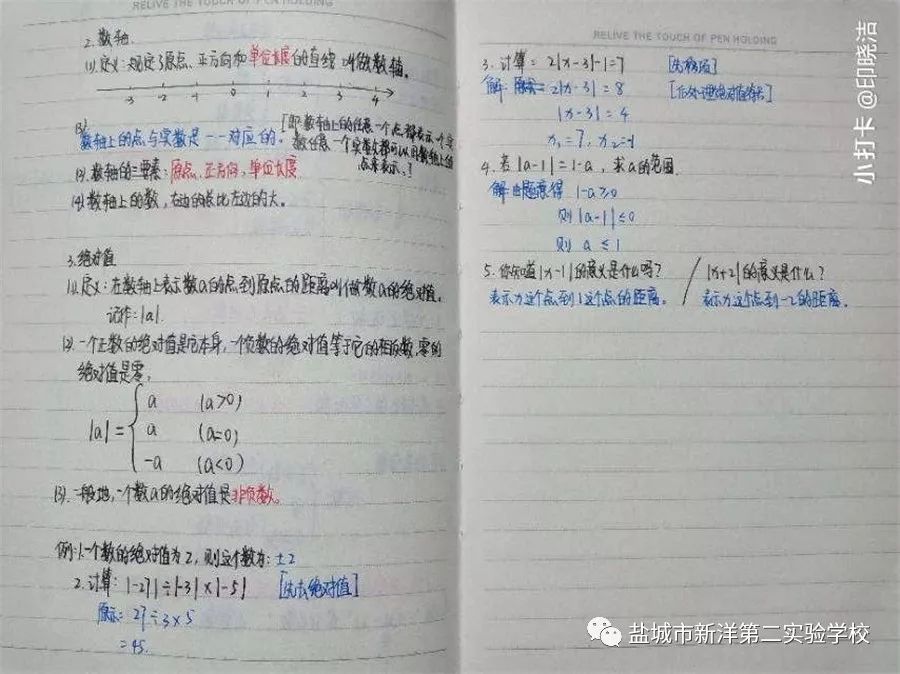 RELIVE THE TOUCH OF PEN HOLDING
2.数轴.
(1).定义:规定了原点、正方向和单位长度的直线叫做数轴。
-3 -2 -1 0 1 2 3 4
(3)数轴上的点与实数是一一对应的。[即数轴上的任意一个点都表示一个实
数任意一个实数都可以用数轴上的
点来表示.]
(2).数轴的三要素:原点、正方向,单位长度
(4)数轴上的数,右边的总比左边的大。
3.绝对值
(1).定义:在数轴上表示数a的点到原点的距离叫做数a的绝对值。
记作:|a|.
(2).一个正数的绝对值是它本身,一个负数的绝对值等于它的相反数,零的
绝对值是零。
|a|= a (a>0)
a (a=0)
-a (a<0)
(3).一般地,一个数a的绝对值是非负数。
例:1.一个数的绝对值为2,则这个数为:±2
2.计算:|-27|÷|-3|×|-5| [先去绝对值]
原式:27÷3×5
=45.
RELIVE THE TOUCH OF PEN HOLDING
3.计算:2|x-3|-1=7 [先移项]
解:原式=2|x-3|=8 [后处理绝对值符号]
|x-3|=4
x₁=7, x₂=-1
4.若|a-1|=1-a,求a的范围.
解:由题意得 1-a≥0
则|a-1|≤0
则 a≤1
5.你知道|x-1|的意义是什么吗? / |x+2|的意义是什么?
表示为这个点到1这个点的距离。 / 表示为这个点到-2的距离.
小打卡@印晓洁
盐城市新洋第二实验学校